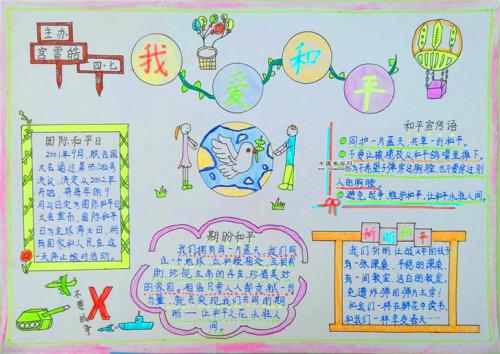 主办
宫雷皓
四·七
我爱和平
国际和平日
2001年9月,联合国
大会通过第55/282号
决议,决定从2002年
开始,将每年的9
月21日定为国际和平日
大会宣布,国际和平日
为全球停火日,所
有国家和人民在这
一天停止敌对活动。
不要战争
国际和平
我们拥有同一片蓝天,我们同
在一个地球,让和睦相处,互相帮
助,珍视生命的存在,珍惜美好
的家园。相信只要人人都贡献一份
力量,就会实现我们共同的期
盼——让和平之花永驻人
间。
和平宣传语
同护一片蓝天,共享一份和平。
不要让橄榄枝从和平鸽嘴里掉下。
你不希望子弹穿过胸膛,也不要穿过别
人的胸膛。
避免战争,维护和平,让和平永驻人间。
祈盼和平
我们祈盼让战火中的孩子
有一张课桌,平稳的课桌,
有一间教室,洁白的教室,
免遭炸弹的弹片击穿!
和我们一样在鲜花中读书,
和我们一样享受春天……